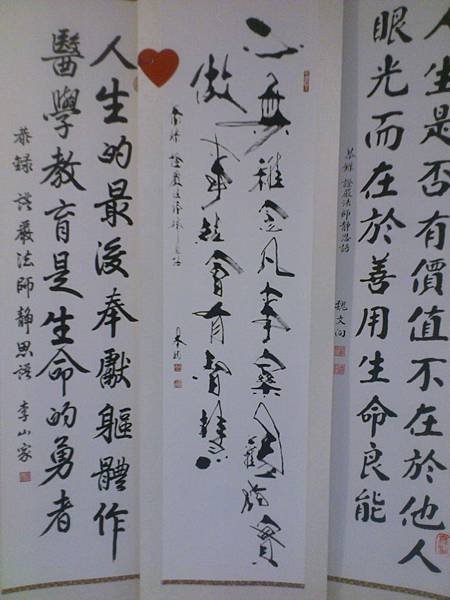 人生是否有價值不在於他人
眼光而在於善用生命良能
恭錄 證嚴法師靜思語
魏文向
心無雜念凡事樂觀踏實
做事就會有智慧
人生的最後奉獻軀體作
醫學教育是生命的勇者
恭錄 證嚴法師靜思語 李山家